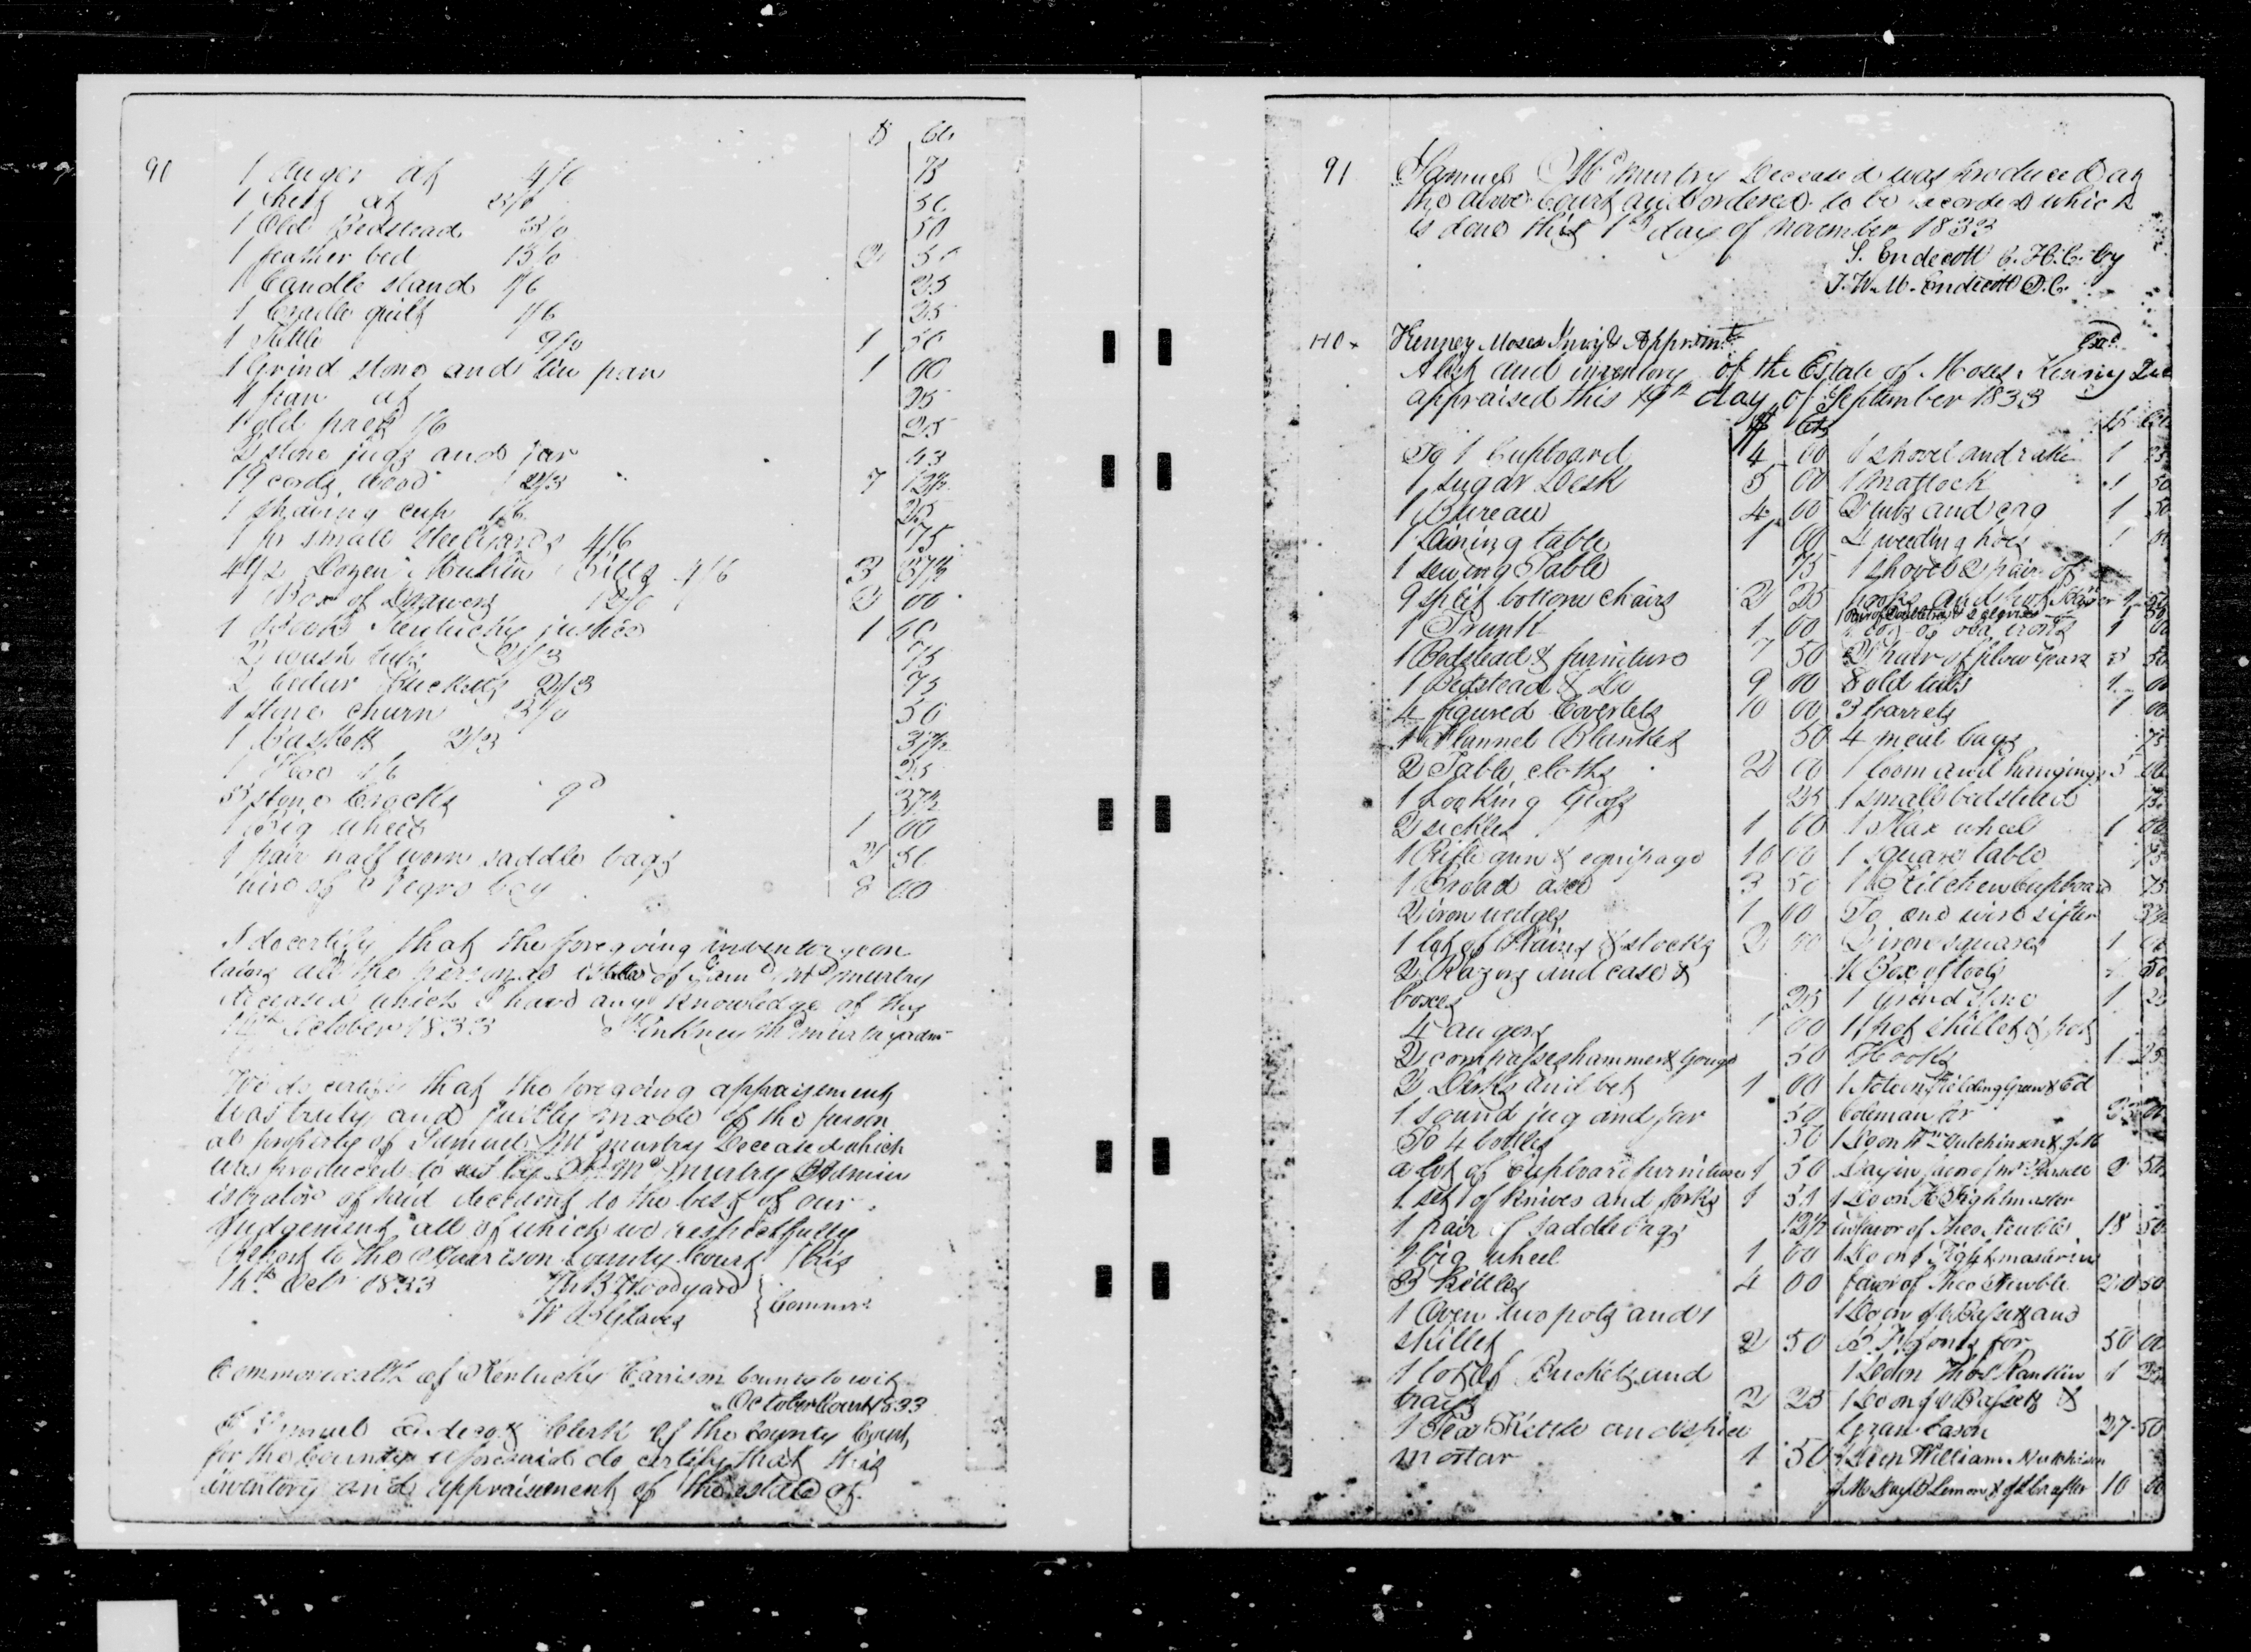 $ Cts
90
1 Auger at 4/6 75
1 Chest at 3/0 50
1 Old Bedstead 3/0 50
1 feather bed 15/0 2 50
1 Candle stand 1/6 25
1 Cradle quilt 1/6 25
1 Kettle 9/0 1 50
1 Grind stone and tin pan 1 00
1 pan at 25
1 old 1/6 25
2 stone jugs and jar 43
19 cords wood 2/3 7 12½
1 Shaving cup 1/6 25
1 pr small Steelyards 4/6 75
4½ Dozen Bills 4/6 3 37½
1 Box of Drawers 12/0 2 00
1 Book Kentucky justice 1 00
2 wash tubs 2/3 75
2 Cedar Bucketts 2/3 75
1 stone churn 3/0 50
1 Baskett 2/3 37½
1 Hoe 1/6 25
3 stone Crocks 9d 37½
1 big wheel 1 00
1 pair half worn saddle bags 2 50
hire of Negro boy 8 00
I do certify that the foregoing inventory con
tains all the personal estate of Sam'l McMurtry
deceased which I have any knowledge of this
14th October 1833 Pinkney McMurtry adm
We do certify that the foregoing appraisement
was truly and justly made of the person
al property of Samuel McMurtry Deceased which
was produced to us by P. McMurtry Admin
istrator of said decedent to the best of our
Judgement all of which we respectfully
Report to the Harrison County Court this
14th Octr 1833 Th B Woodyard
W Glaves
Commrs
Commonwealth of Kentucky Harrison County to wit
October Court 1833
I Samuel Endecott Clerk of the County Court
for the County aforesaid do certify that this
inventory and appraisement of the estate of
91
Samuel McMurtry Deceased was produced at
the above Court and ordered to be recorded which
is done this 1st day of November 1833
S. Endecott C.H.C. by
J.W.M. Endicott D.C.
Kenney Moses Invy & Apprsmt
A list and inventory of the Estate of Moses Kenny Dec
appraised this 19th day of September 1833
$ Cts
To 1 Cupboard 4 00
1 Sugar Desk 5 00
1 Bureau 4 00
1 Dining table 1 00
1 sewing Table 75
9 split bottom chairs 2 25
1 Trunk 1 00
1 Bedstead & furniture 7 50
1 Bedstead & Do 9 00
4 figured Coverlets 10 00
1 Flannel Blanket 50
2 Table cloths 2 00
1 Looking Glass 25
2 sickles 1 00
1 Rifle gun & equipage 10 00
1 Broad axe 3 50
2 iron wedges 1 00
1 lot of Plains & stocks 2 00
2 Razors and case &
boxes 25
4 augers 1 00
2 compasses hammer & Gouge 50
1 00
1 sound jug and jar 50
To 4 bottles 50
a lot of Cupboard furniture 1 50
1 set of knives and forks 1 51
1 pair of saddlebags 12½
1 big wheel 1 00
3 Kittles 4 00
1 Oven two pots and 1
skillet 2 50
1 lot of Buckets and
trays 2 25
1 Tea Kettle and
mortar 1 50
$ Cts
1 shovel and rake 1 25
1 mattock 1 50
2 tubs and cag 1 50
4 weeding hoes 1 00
1 shovel 2 pair of
2 pair of plow gears 3 50
8 old tubs 1 00
3 barrels 1 00
4 meal bags 75
1 loom and hangings 5 00
1 small bedstead 75
1 Flax wheel 1 00
1 square table 75
1 Kitchen Cupboard 75
To one wire sifter 37½
2 iron squares 1 00
1 Box of tools 50
1 Grind stone 1 25
1 pot skillet & pot
Hooks 1 25
1 Note on Fielding Green & Ed
Coleman for
1 Do on Wm Hutchinson & J.M
Day in favor of
1 Do on H Rightmaster
in favor of Theo Newble 18 50
1 Do on Rightmaster in
favor of Theo Newble 20 50
1 Do on and
for 50 00
1 Do on Thos Rankin 1 25
1 Do on &
Eason 27 50
1 Do on William Hutchison
J.M. Day 10 00